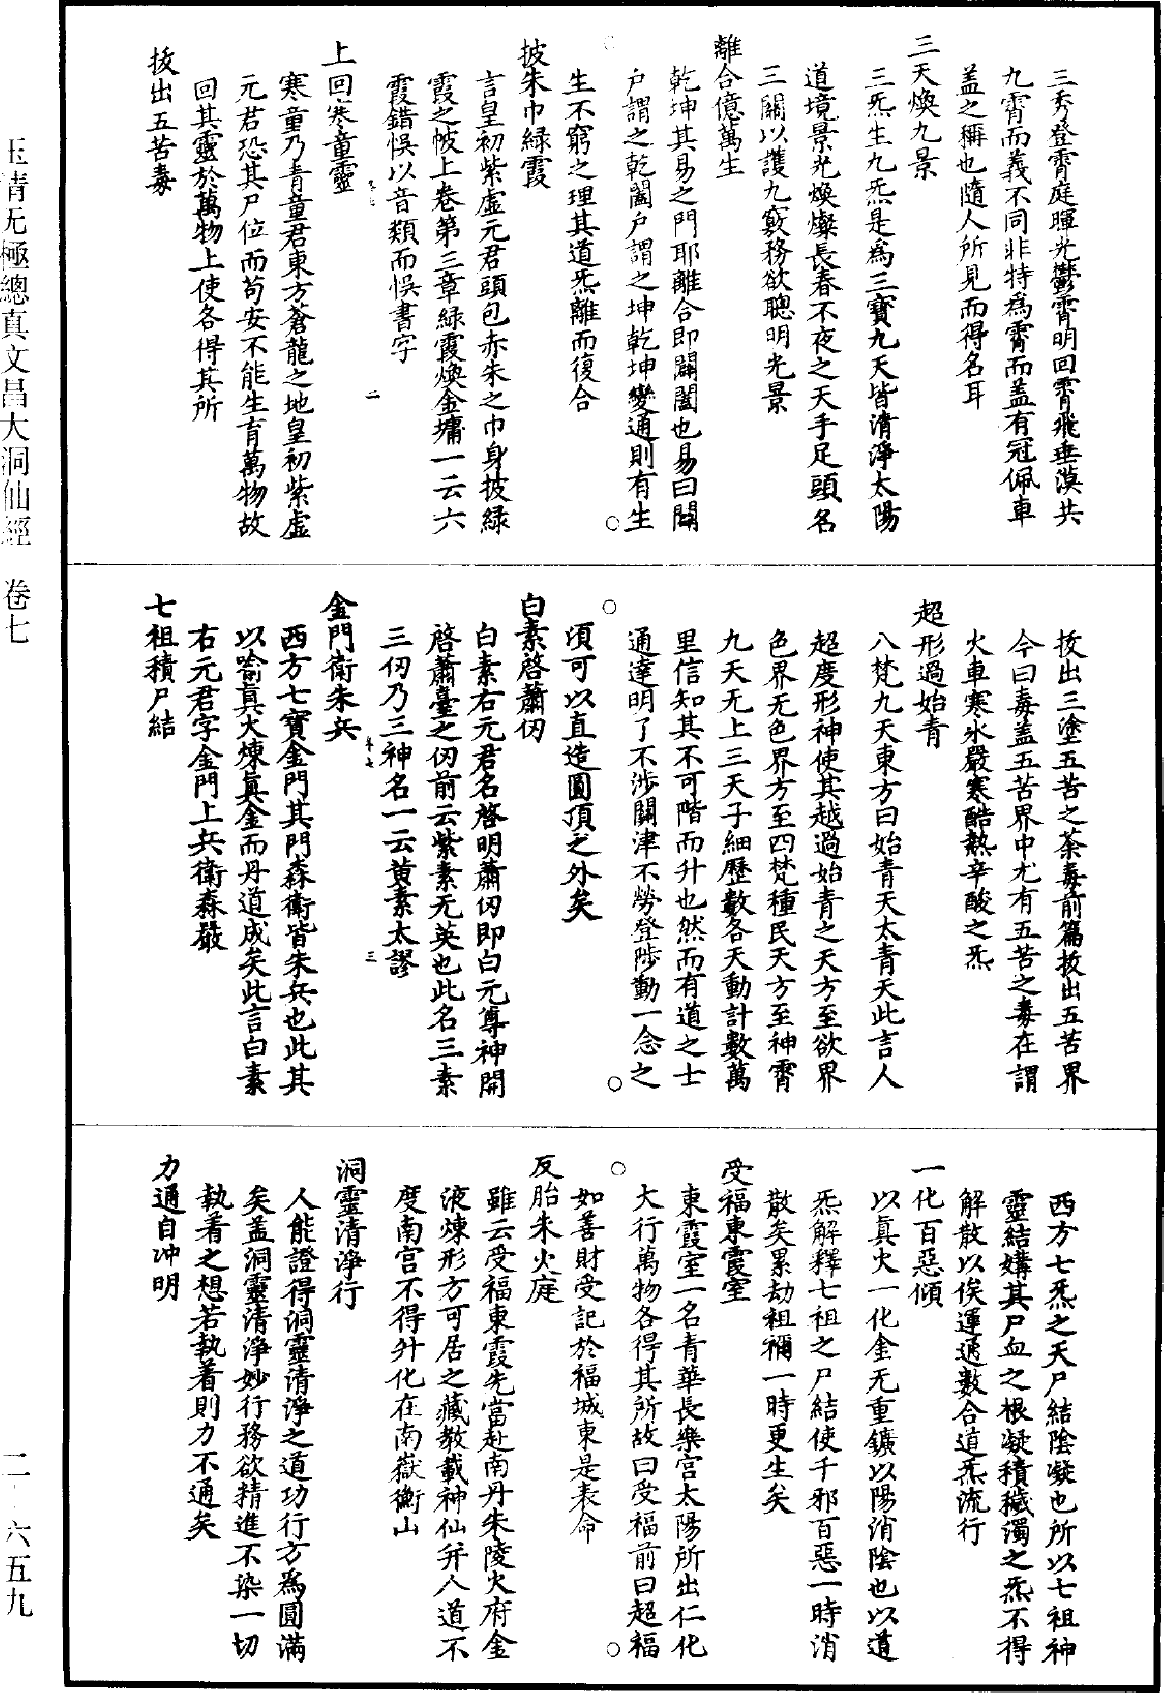 三秀登霄庭暉光鬱霄明回霄飛垂漠共
九霄而義不同非特爲霄而蓋有冠佩車
蓋之稱也隨人所見而得名耳
三天煥九景
三炁生九炁是爲三寶九天皆清淨太陽
道境景光煥燦長春不夜之天手足頭名
三關以護九竅務欲聰明光景
離合億萬生
乾坤其易之門耶離合即闢闔也易曰闢
户謂之乾闔户謂之坤乾坤變通則有生
生不窮之理其道炁離而復合
披朱巾綠霞
言皇初紫虛元君頭包赤朱之巾身披綠
霞之帔上卷第三章綠霞煥金墉一云六
霞錯悞以音類而悞書字
二
上回寒童靈
寒童乃青童君東方蒼龍之地皇初紫虛
元君恐其尸位而苟安不能生育萬物故
回其靈於萬物上使各得其所
拔出五苦毒
拔出三塗五苦之荼毒前篇拔出五苦界
今曰毒蓋五苦界中尤有五苦之毒在謂
火車寒氷嚴寒酷熱辛酸之炁
超形過始青
八梵九天東方曰始青天太青天此言人
超度形神使其越過始青之天方至欲界
色界无色界方至四梵種民天方至神霄
九天无上三天子細歷數各天動計數萬
里信知其不可階而升也然而有道之士
通達明了不涉關津不勞登陟動一念之
頃可以直造圓頂之外矣
白素啓蕭仞
白素右元君名啓明蕭仞即白元尊神開
啓蕭臺之仞前云紫素无英也此名三素
三仞乃三神名一云黄素太謬
卷七
三
金門衛朱兵
西方七寶金門其門森衛皆朱兵也此其
以喻眞火煉眞金而丹道成矣此言白素
右元君字金門上兵衛森嚴
七祖積尸結
西方七炁之天尸結陰凝也所以七祖神
靈結媾其尸血之根凝積穢濁之炁不得
解散以俟運通數合道炁流行
一化百惡傾
以真火一化金无重鑛以陽消陰也以道
炁解釋七祖之尸結使千邪百惡一時消
散矣累劫祖禰一時更生矣
受福東霞室
東霞室一名青華長樂宫太陽所出仁化
大行萬物各得其所故曰受福前曰超福
如善財受記於福城東是表命
反胎朱火庭
雖云受福東霞先當赴南丹朱陵火府金
液煉形方可居之藏教載神仙并人道不
度南宫不得升化在南嶽衡山
洞靈清淨行
人能證得洞靈清淨之道功行方爲圓滿
矣蓋洞靈清淨妙行務欲精進不染一切
執着之想若執着則力不通矣
力通自冲明
玉清无極總真文昌大洞仙經 卷七
二·六五九